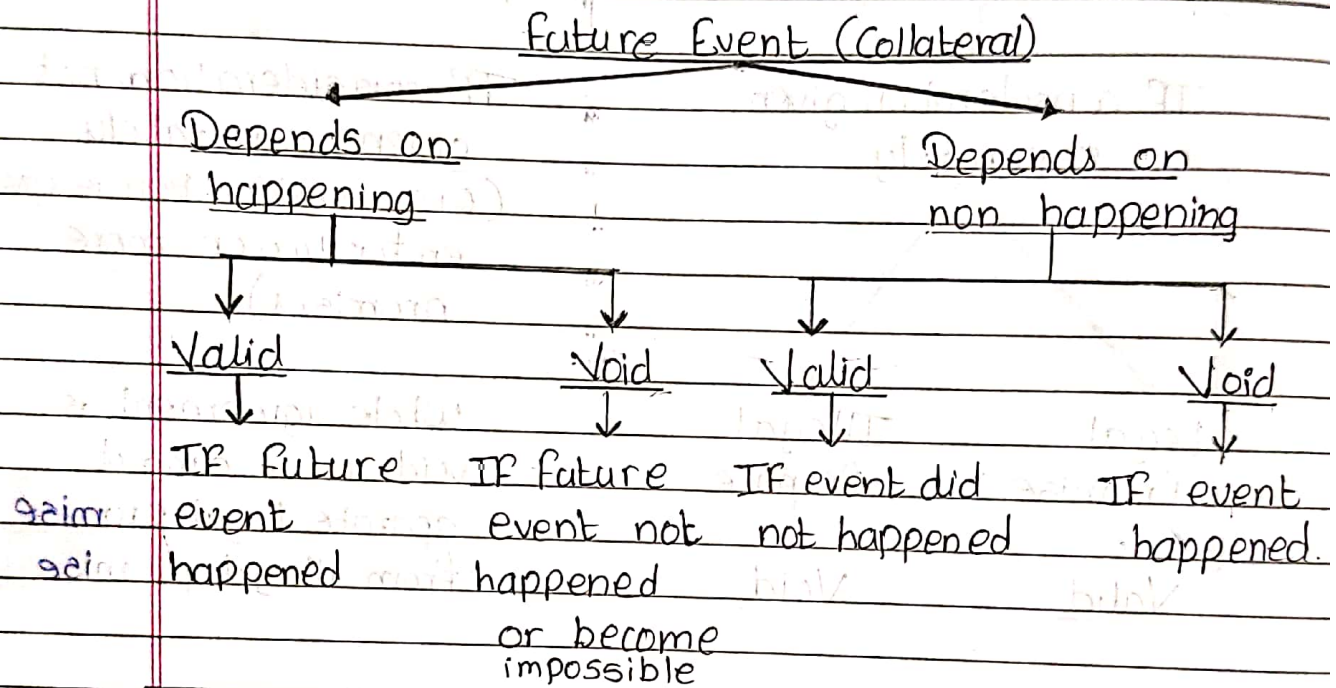 Future Event (Collateral)
Depends on
happening
Depends on
non happening
Valid
Void
Valid
Void
IF Future
event
happened
IF future
event not
happened
or become
impossible
IF event did
not happened
IF event
happened.